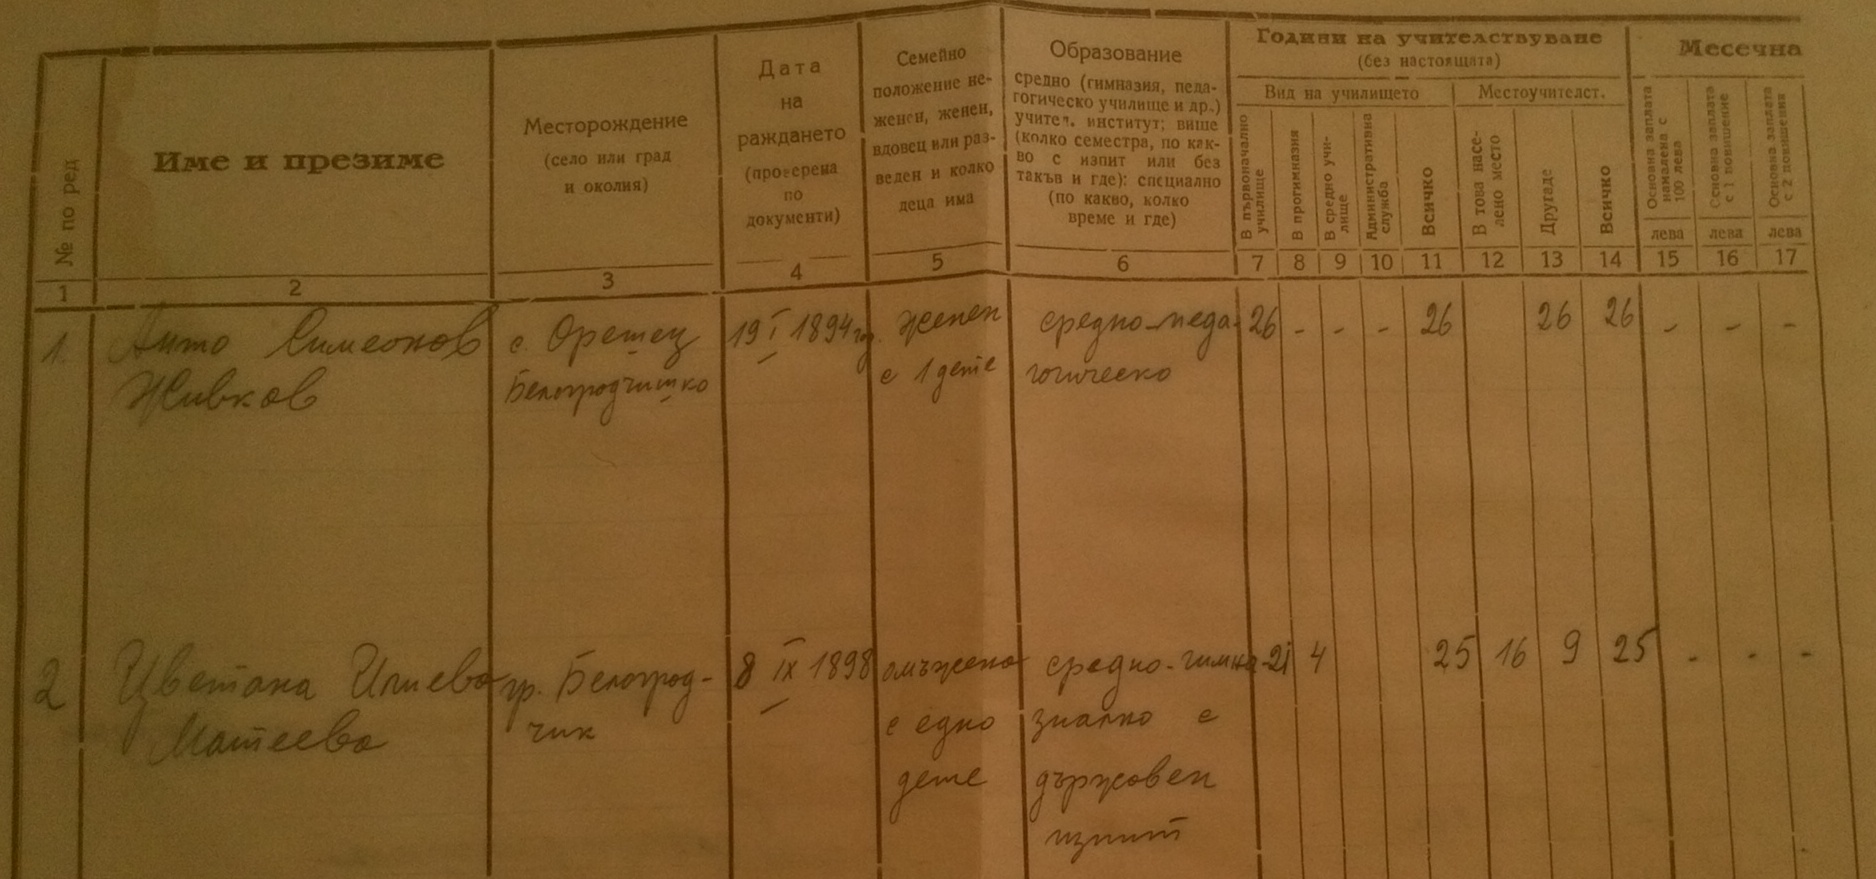 № по ред
Име и презиме
Месторождение
(село или град
и околия)
Дата
на
раждането
(проверена
по
документи)
Семейно
положение не-
женен, женен,
вдовец или раз-
веден и колко
деца има
Образование
средно (гимназия, педа-
гогическо училище и др.)
учител. институт; више
(колко семестра, по как-
во с изпит или без
такъв и где): специално
(по какво, колко
време и где)
Години на учителствуване
(без настоящата)
Вид на училището
Местоучителст.
В първоначално
училище
В прогимназия
В средно учи-
лище
Административна
служба
Всичко
В това насе-
лено место
Другаде
Всичко
Месечна
Основна заплата
намалена с
100 лева
Основна заплата
с 1 повишение
Основна заплата
с 2 повишения
лева
лева
лева
1 2 3 4 5 6 7 8 9 10 11 12 13 14 15 16 17
1. Анто Симеонов с. Орешец 19 I 1894 год. женен средно-педа- 26 - - - 26 26 26 - - -
Живков Белоградчишко с 1 дете гогическо
2 Цветана Илиева гр. Белоград- 8 IX 1898 омъжена средно-гимна- 21 4 25 16 9 25 - - -
Матеева чик с едно зиално с
дете държавен
изпит